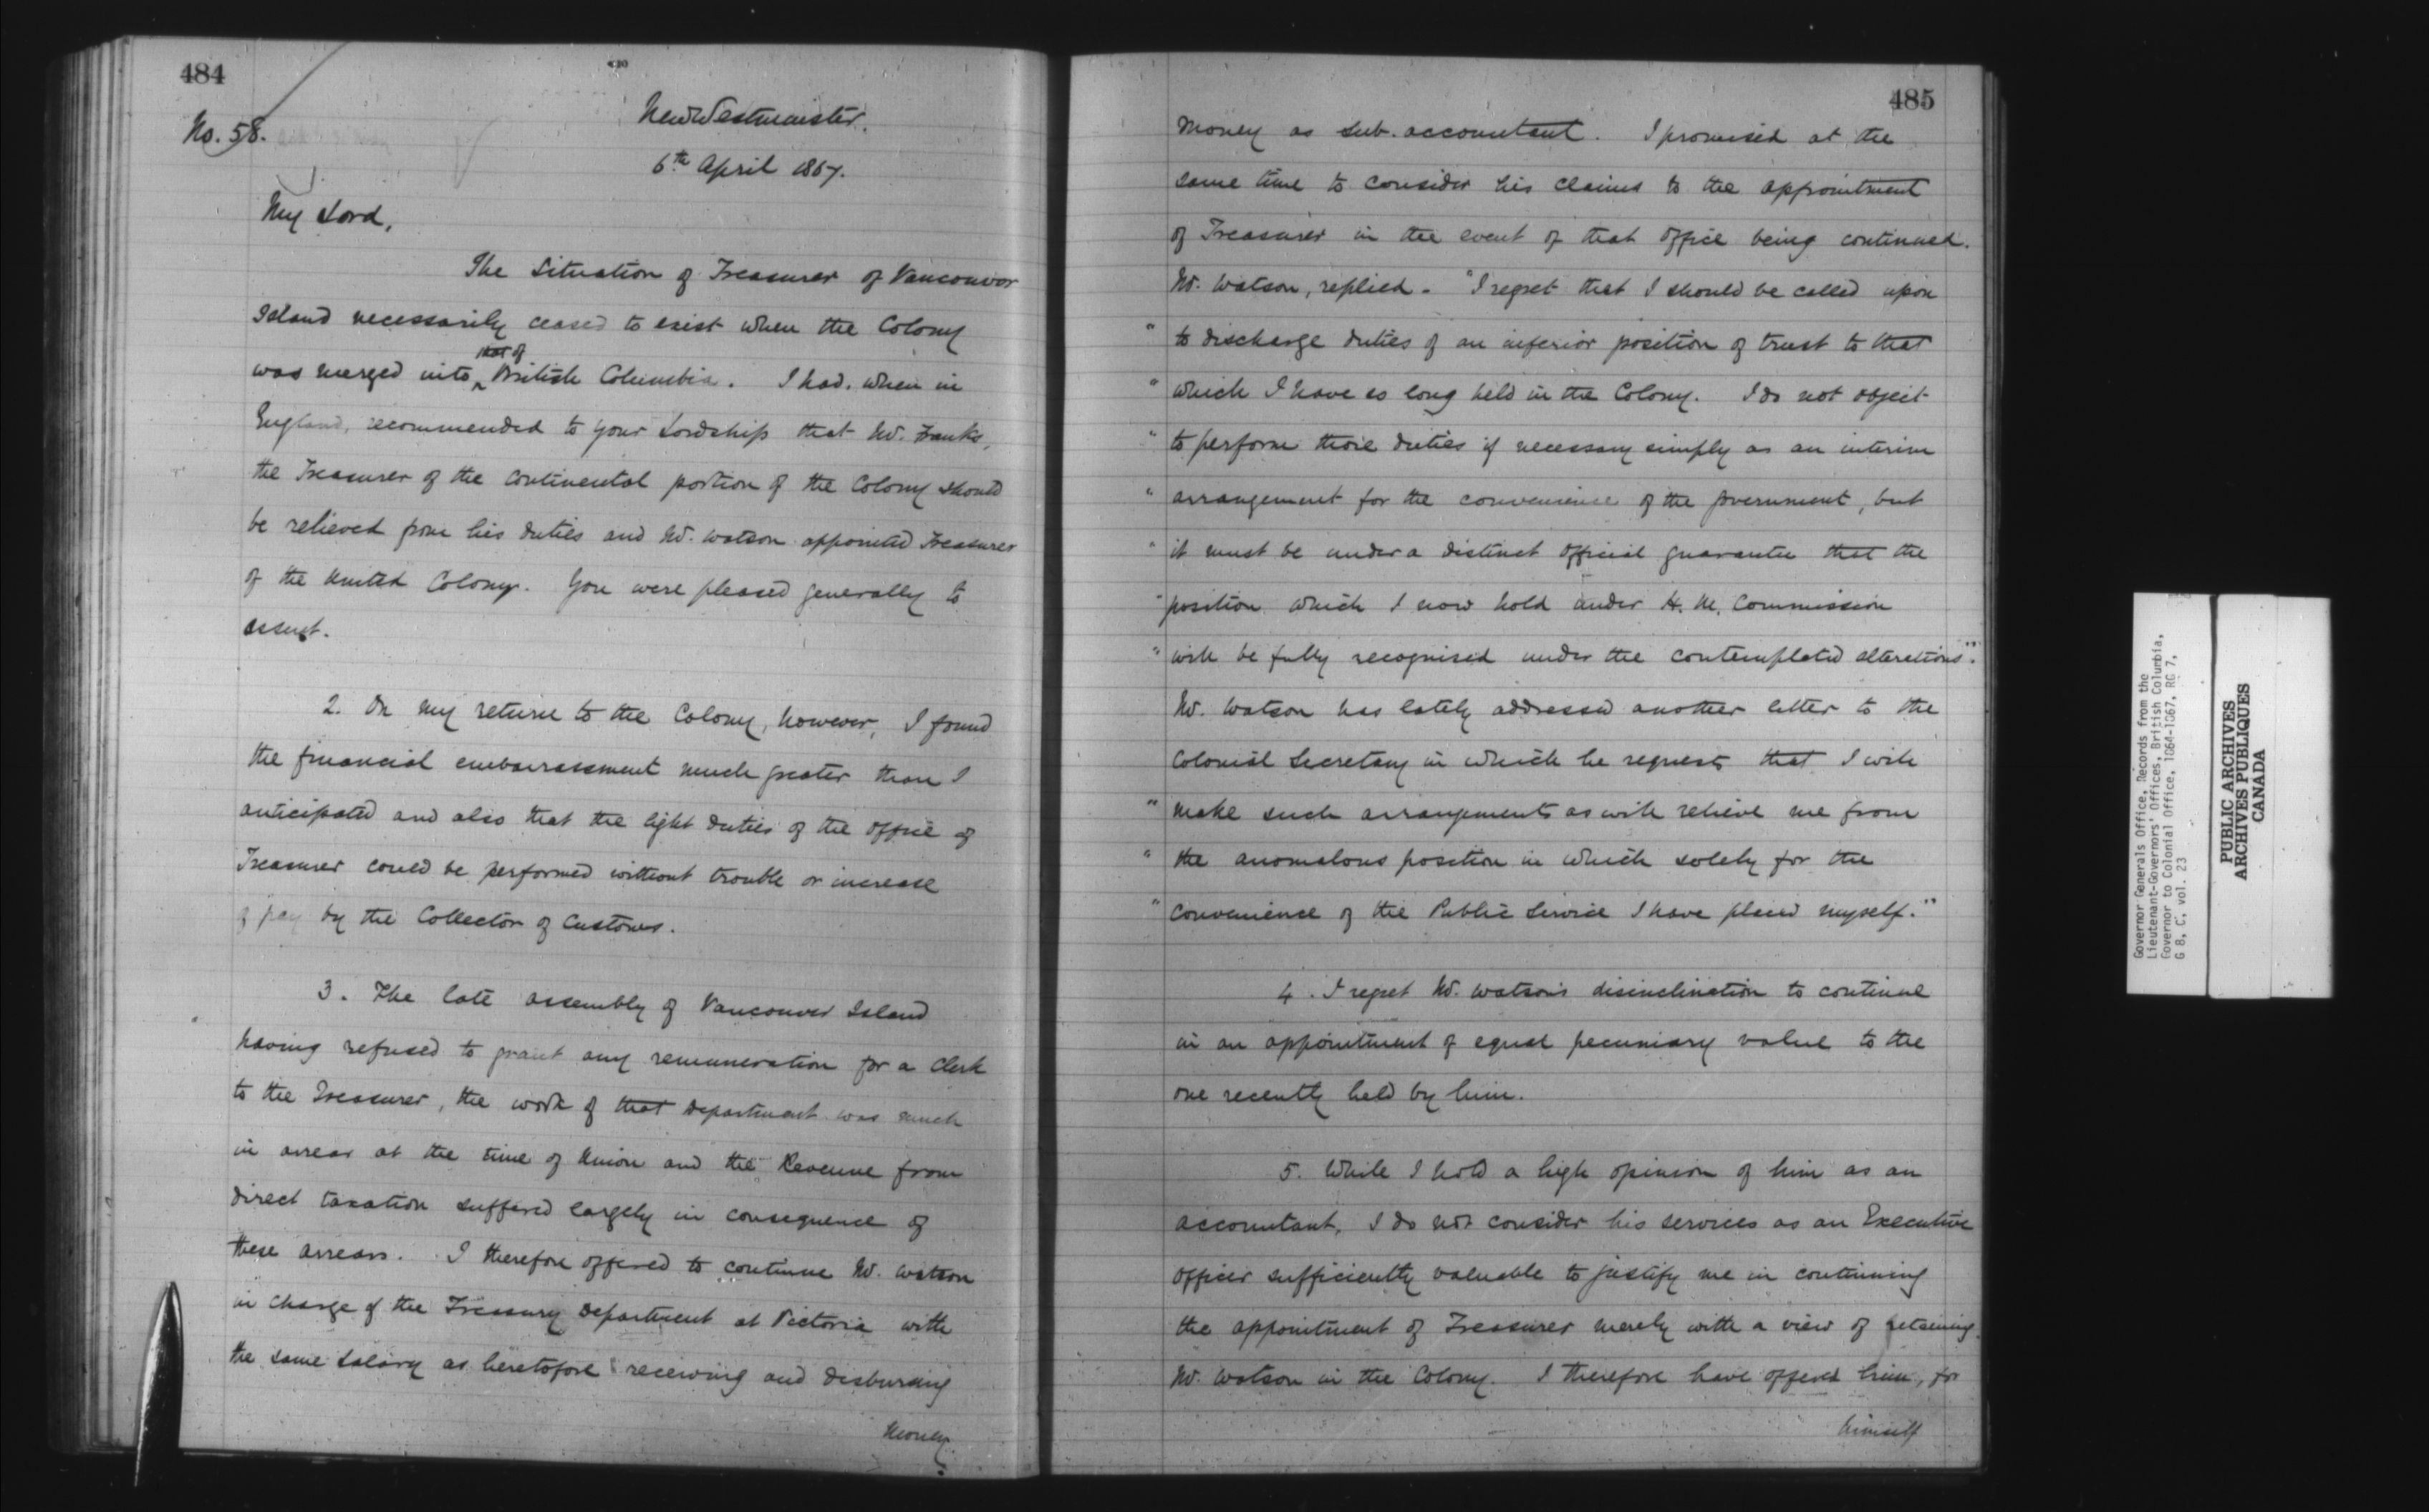 484
No. 58.
New Westminster.
6th April 1867.
My Lord,
The Situation of Treasurer of Vancouver
Island necessarily ceased to exist when the Colony
that of
was merged into ^ British Columbia. I had, when in
England, recommended to Your Lordship that Mr. Franks,
the Treasurer of the Continental portion of the Colony should
be relieved from his duties and Mr. Watson appointed Treasurer
of the United Colony. You were pleased generally to
assent.
2. On my return to the Colony, however, I found
the financial embarrassment much greater than I
anticipated and also that the light duties of the office of
Treasurer could be performed without trouble or increase
of pay by the Collector of Customs.
3. The late assembly of Vancouver Island
having refused to grant any remuneration for a Clerk
to the Treasurer, the work of that Department was much
in arrear at the time of Union and the Revenue from
direct taxation suffered largely in consequence of
these arrears. I therefore offered to continue Mr. Watson
in charge of the Treasury Department at Victoria with
the same salary as heretofore receiving and disbursing
money
485
money as sub. accountant. I promised at the
same time to consider his claims to the appointment
of Treasurer in the event of that office being continued.
Mr. Watson, replied - "I regret that I should be called upon
" to discharge duties of an inferior position of trust to that
" which I have so long held in the Colony. I do not object
" to perform those duties if necessary simply as an interim
" arrangement for the convenience of the Government, but
" it must be under a distinct official guarantee that the
" position which I now hold under H. M. Commission
" will be fully recognised under the contemplated alterations".
Mr. Watson has lately addressed another letter to the
Colonial Secretary in which he requests that I will
" make such arrangements as will relieve me from
" the anomalous position in which solely for the
" convenience of the Public Service I have placed myself."
4. I regret Mr. Watson's disinclination to continue
in an appointment of equal pecuniary value to the
one recently held by him.
5. While I hold a high opinion of him as an
accountant, I do not consider his services as an Executive
officer sufficiently valuable to justify me in continuing
the appointment of Treasurer merely with a view of retaining
Mr. Watson in the Colony. I therefore have offered him, for
himself
Governor Generals Office, Records from the
Lieutenant-Governors' Offices, British Columbia,
Governor to Colonial Office, 1864-1867, RG 7,
G 8, C, vol. 23
PUBLIC ARCHIVES
ARCHIVES PUBLIQUES
CANADA